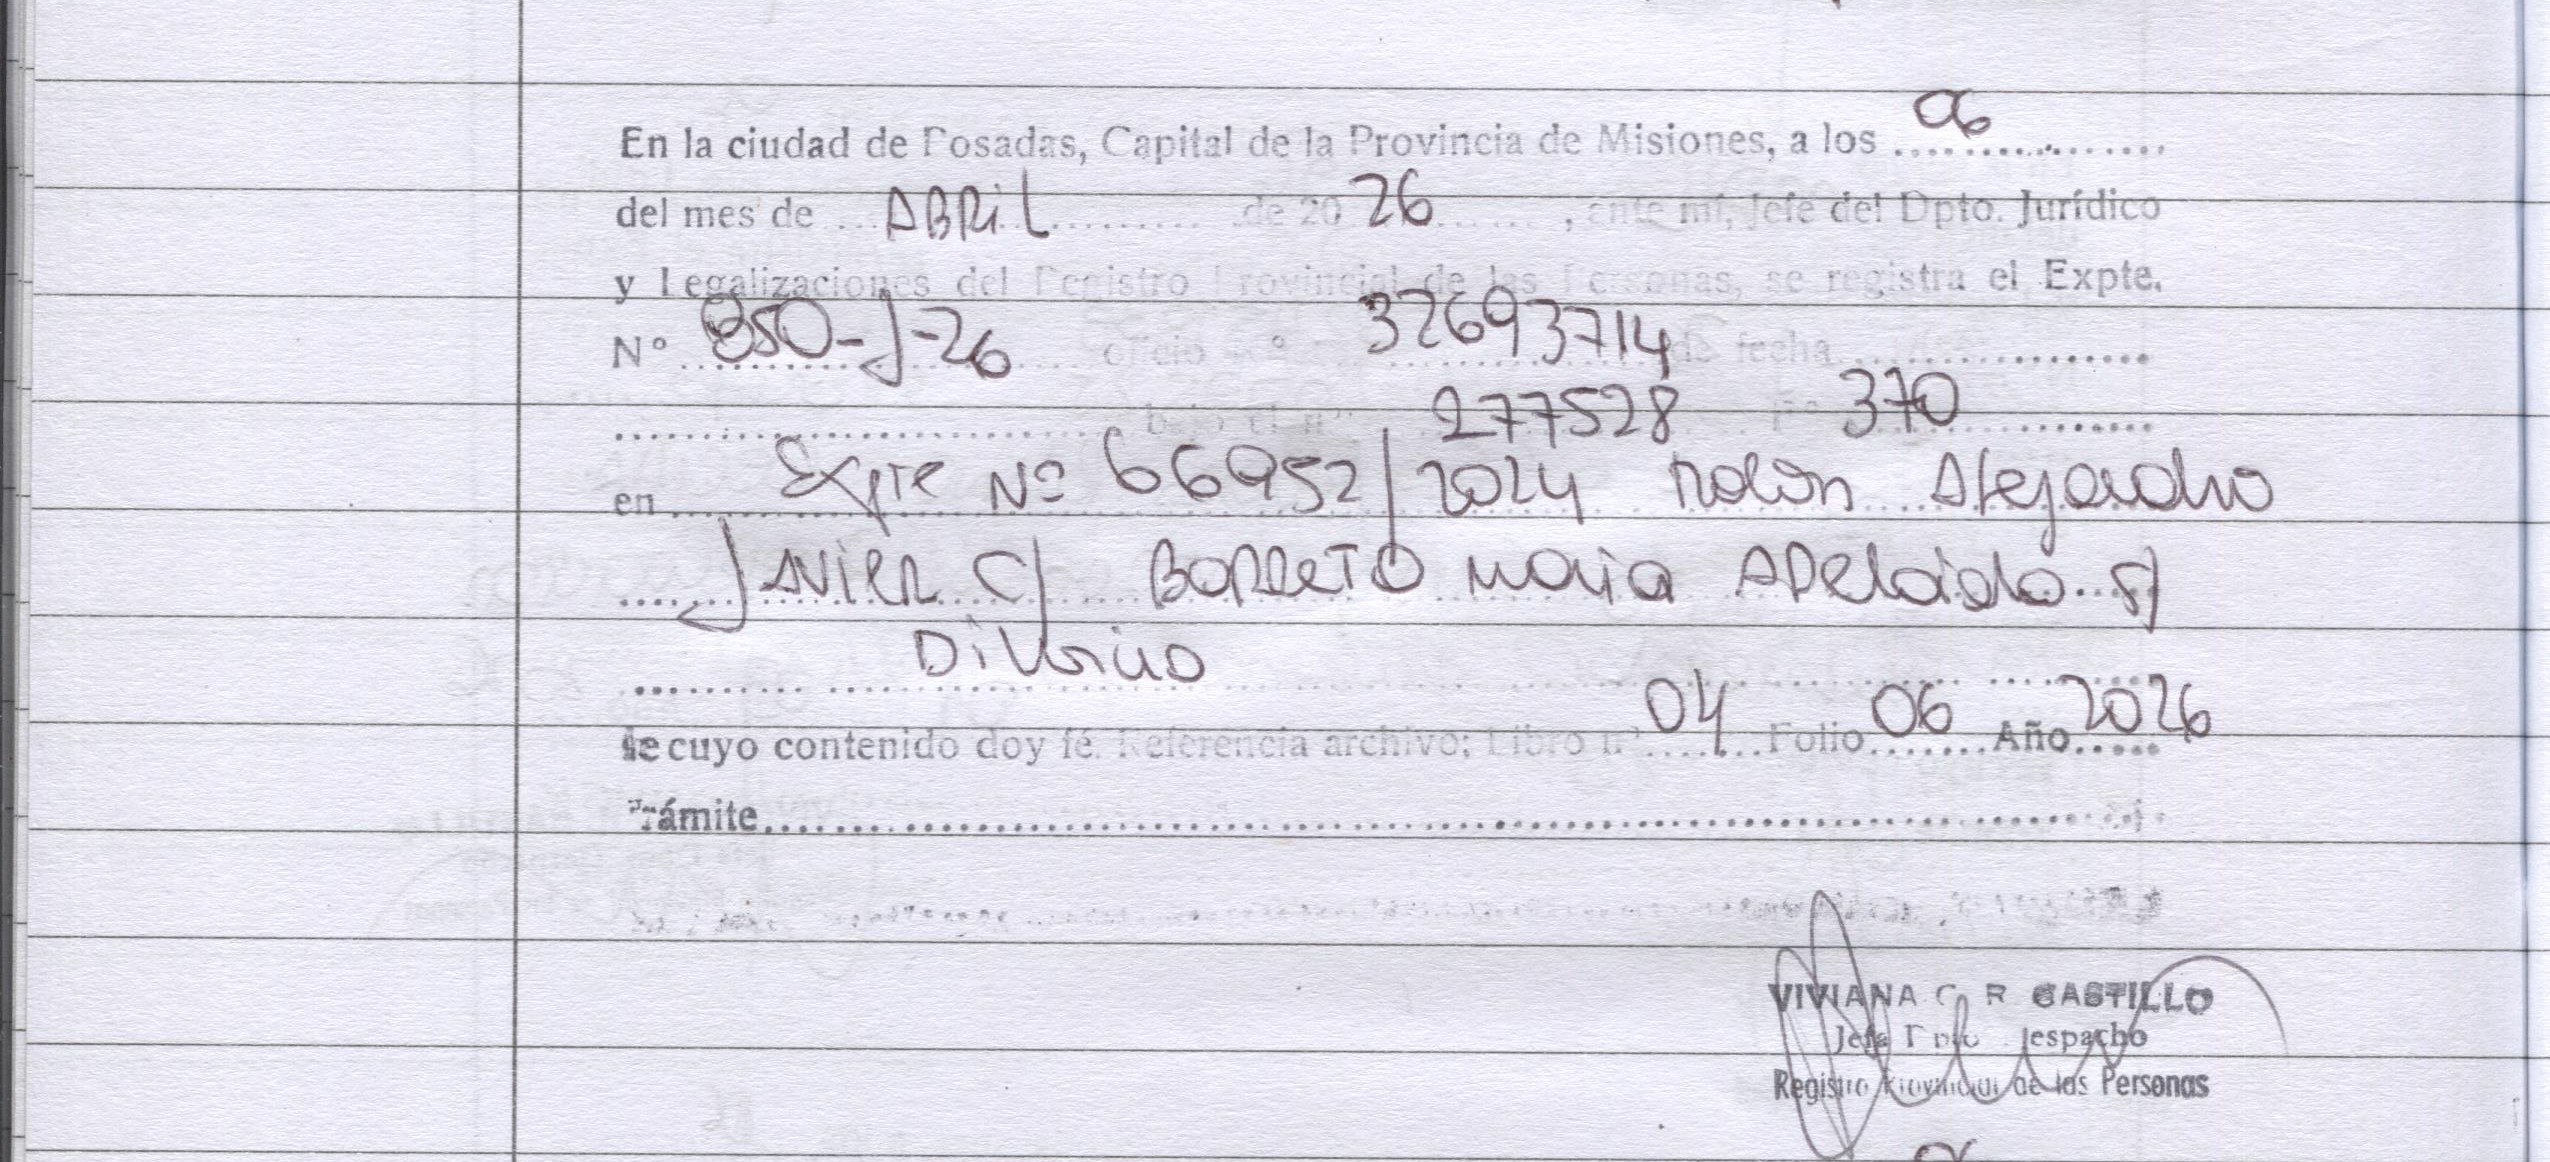 En la ciudad de Posadas, Capital de la Provincia de Misiones, a los 06
del mes de ABRIL de 20 26, ante mí, Jefe del Dpto. Jurídico
y Legalizaciones del Registro Provincial de las Personas, se registra el Expte.
N° 850-J-26 oficio n° 32693714 de fecha
bajo el n° 277528 F° 370
en Expte Nº 66952/2024 Rolon Alejandro
JAVIER C/ BORRETO Maria ADelaida S/
Divorcio
de cuyo contenido doy fé. Referencia archivo: Libro n° 04 Folio 06 Año 2026
Trámite
VIVIANA C. R. CASTILLO
Jefa Dpto. Despacho
Registro Provincial de las Personas